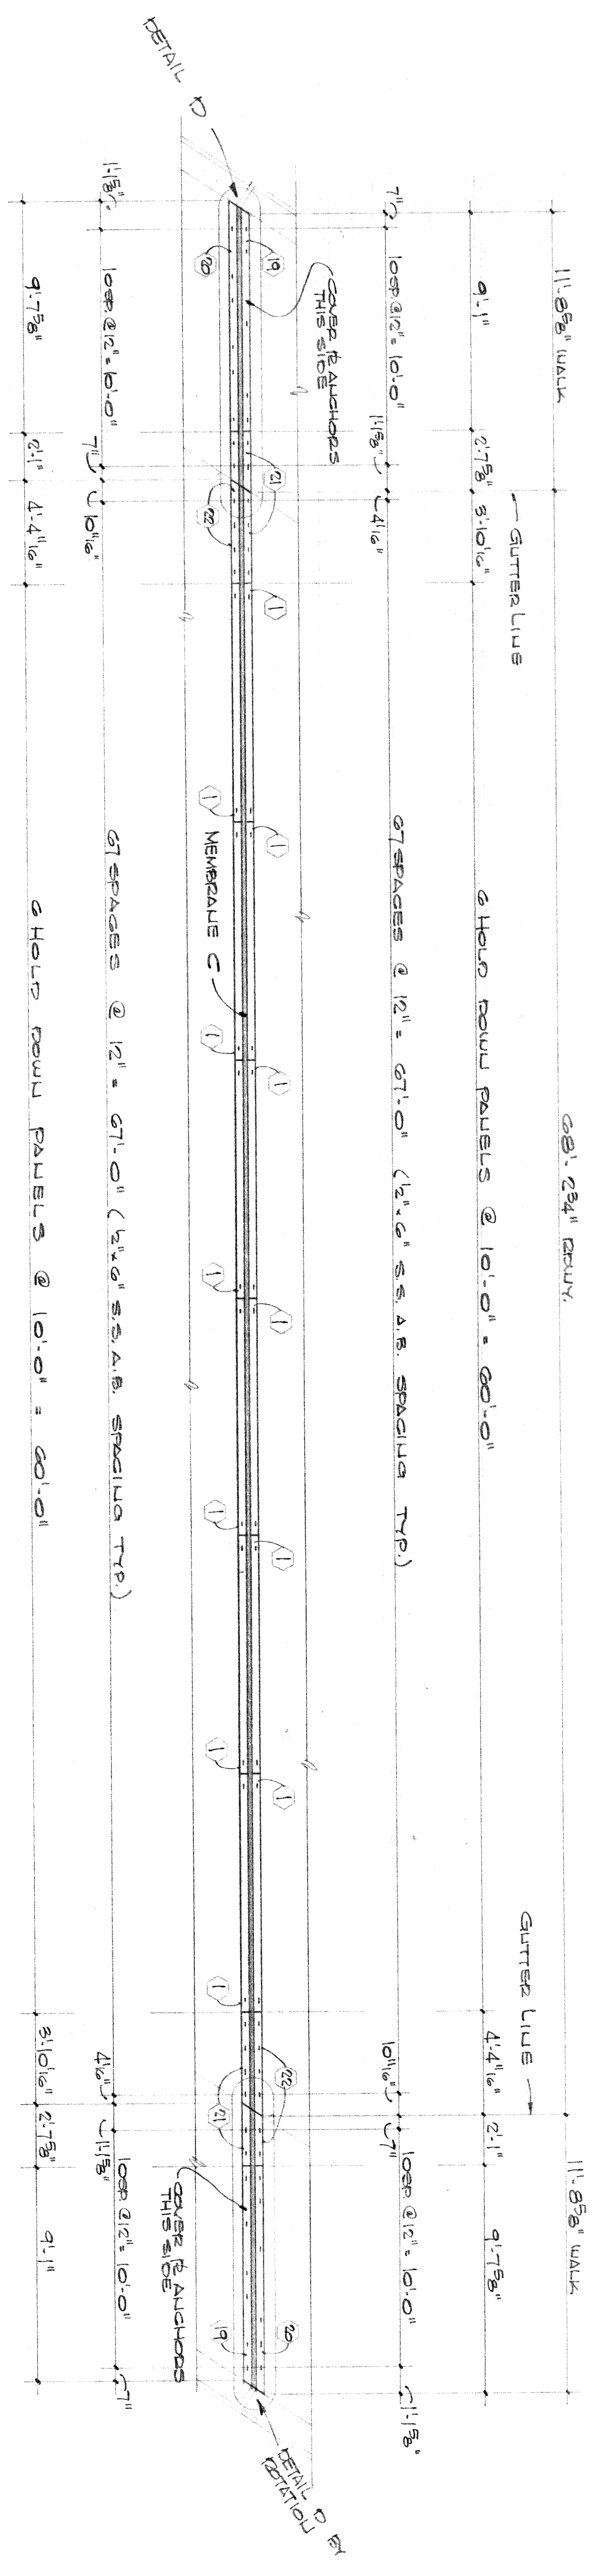 DETAIL D
11'-8⅝" WALK
GUTTER LINE
68'-2¾" RDWY.
GUTTER LINE
11'-8⅝" WALK
9'-1"
2'-7⅝"
3'-10 1/16"
6 HOLD DOWN PANELS @ 10'-0" = 60'-0"
4'-4 1/16"
2'-1"
9'-7⅝"
7"
10SP. @ 12" = 10'-0"
1'-1⅝"
4 1/16"
67 SPACES @ 12" = 67'-0" (½"x6" S.S. A.B. SPACING TYP.)
10 1/16"
7"
10SP. @ 12" = 10'-0"
1'-1⅝"
COVER ℞ ANCHORS
THIS SIDE
19
21
1
1
1
1
1
1
22
20
20
22
1
MEMBRANE C
1
1
1
1
1
21
19
COVER ℞ ANCHORS
THIS SIDE
DETAIL D BY
ROTATION
1'-1⅝"
10SP. @ 12" = 10'-0"
7"
10 1/16"
67 SPACES @ 12" = 67'-0" (½"x6" S.S. A.B. SPACING TYP.)
4 1/16"
1'-1⅝"
10SP. @ 12" = 10'-0"
7"
9'-7⅝"
2'-1"
4'-4 1/16"
6 HOLD DOWN PANELS @ 10'-0" = 60'-0"
3'-10 1/16"
2'-7⅝"
9'-1"